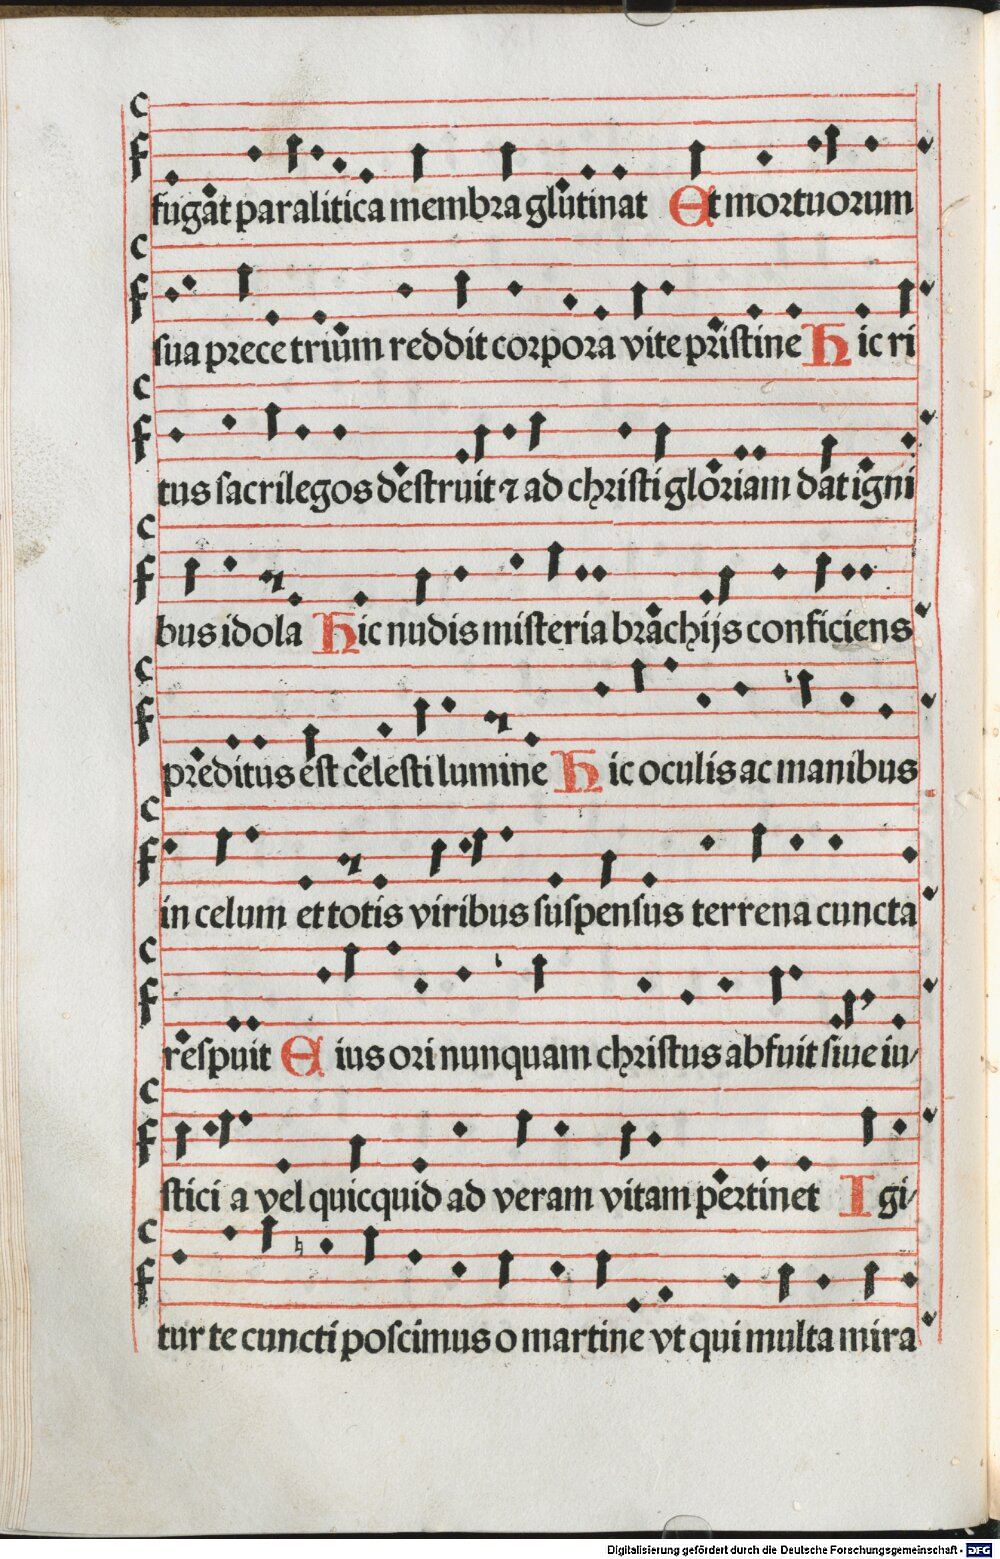 fugat paralitica membra glutinat Et mortuorum
sua prece trium reddit corpora vite pristine Hic ri
tus sacrilegos destruit ⁊ ad christi gloriam dat igni
bus idola Hic nudis misteria brachijs conficiens
preditus est celesti lumine Hic oculis ac manibus
in celum et totis viribus suspensus terrena cuncta
respuit Eius ori nunquam christus abfuit siue iu/
stici a vel quicquid ad veram vitam pertinet Igi/
tur te cuncti poscimus o martine vt qui multa mira
Digitalisierung gefördert durch die Deutsche Forschungsgemeinschaft - DFG